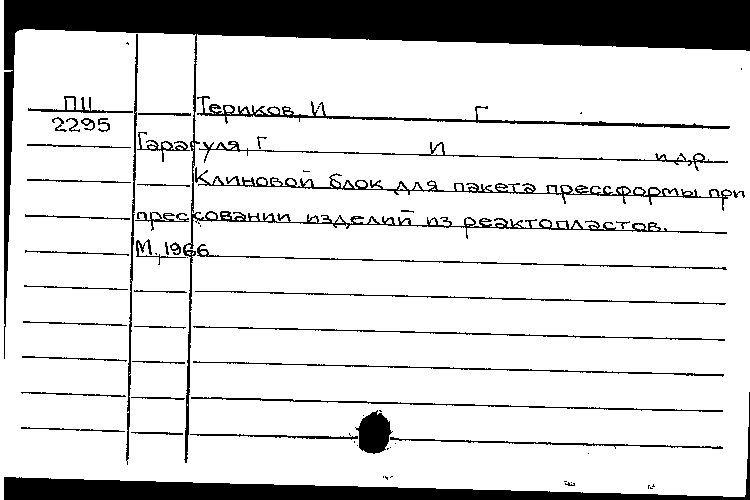 П11 Териков, И Г
2295
Гарагуля, Г И и др
Клиновой блок для пакета прессформы при
прессовании изделий из реактопластов.
М., 1966